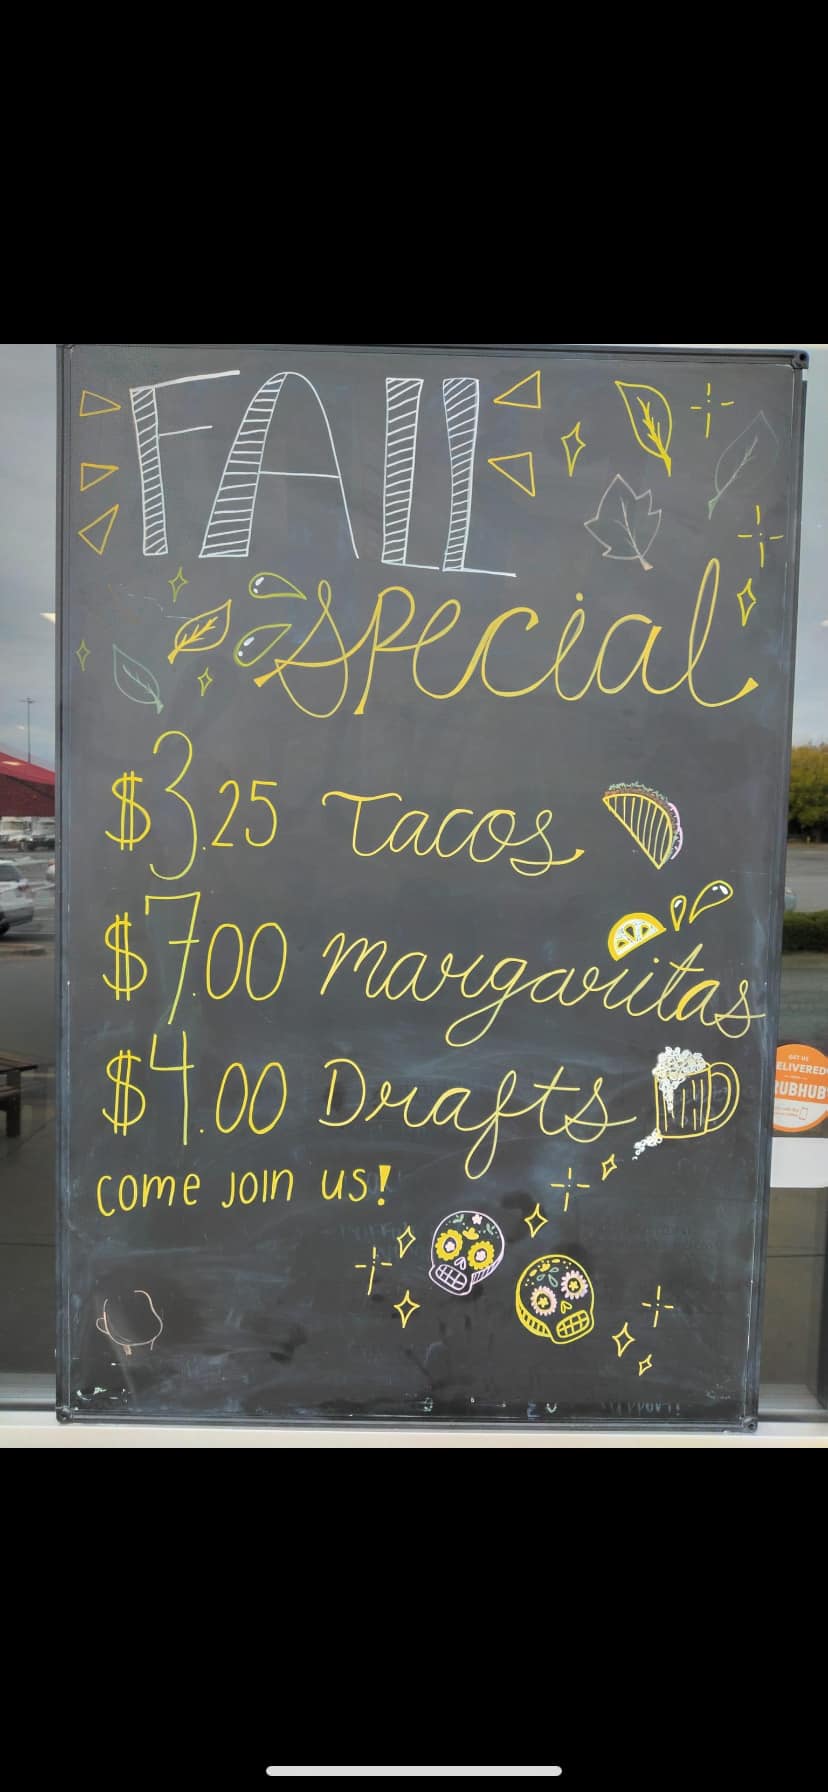 FALL
Special
$3.25 Tacos
$7.00 margaritas
$4.00 Drafts
come join us!
GET US
ELIVERED
UBHUB